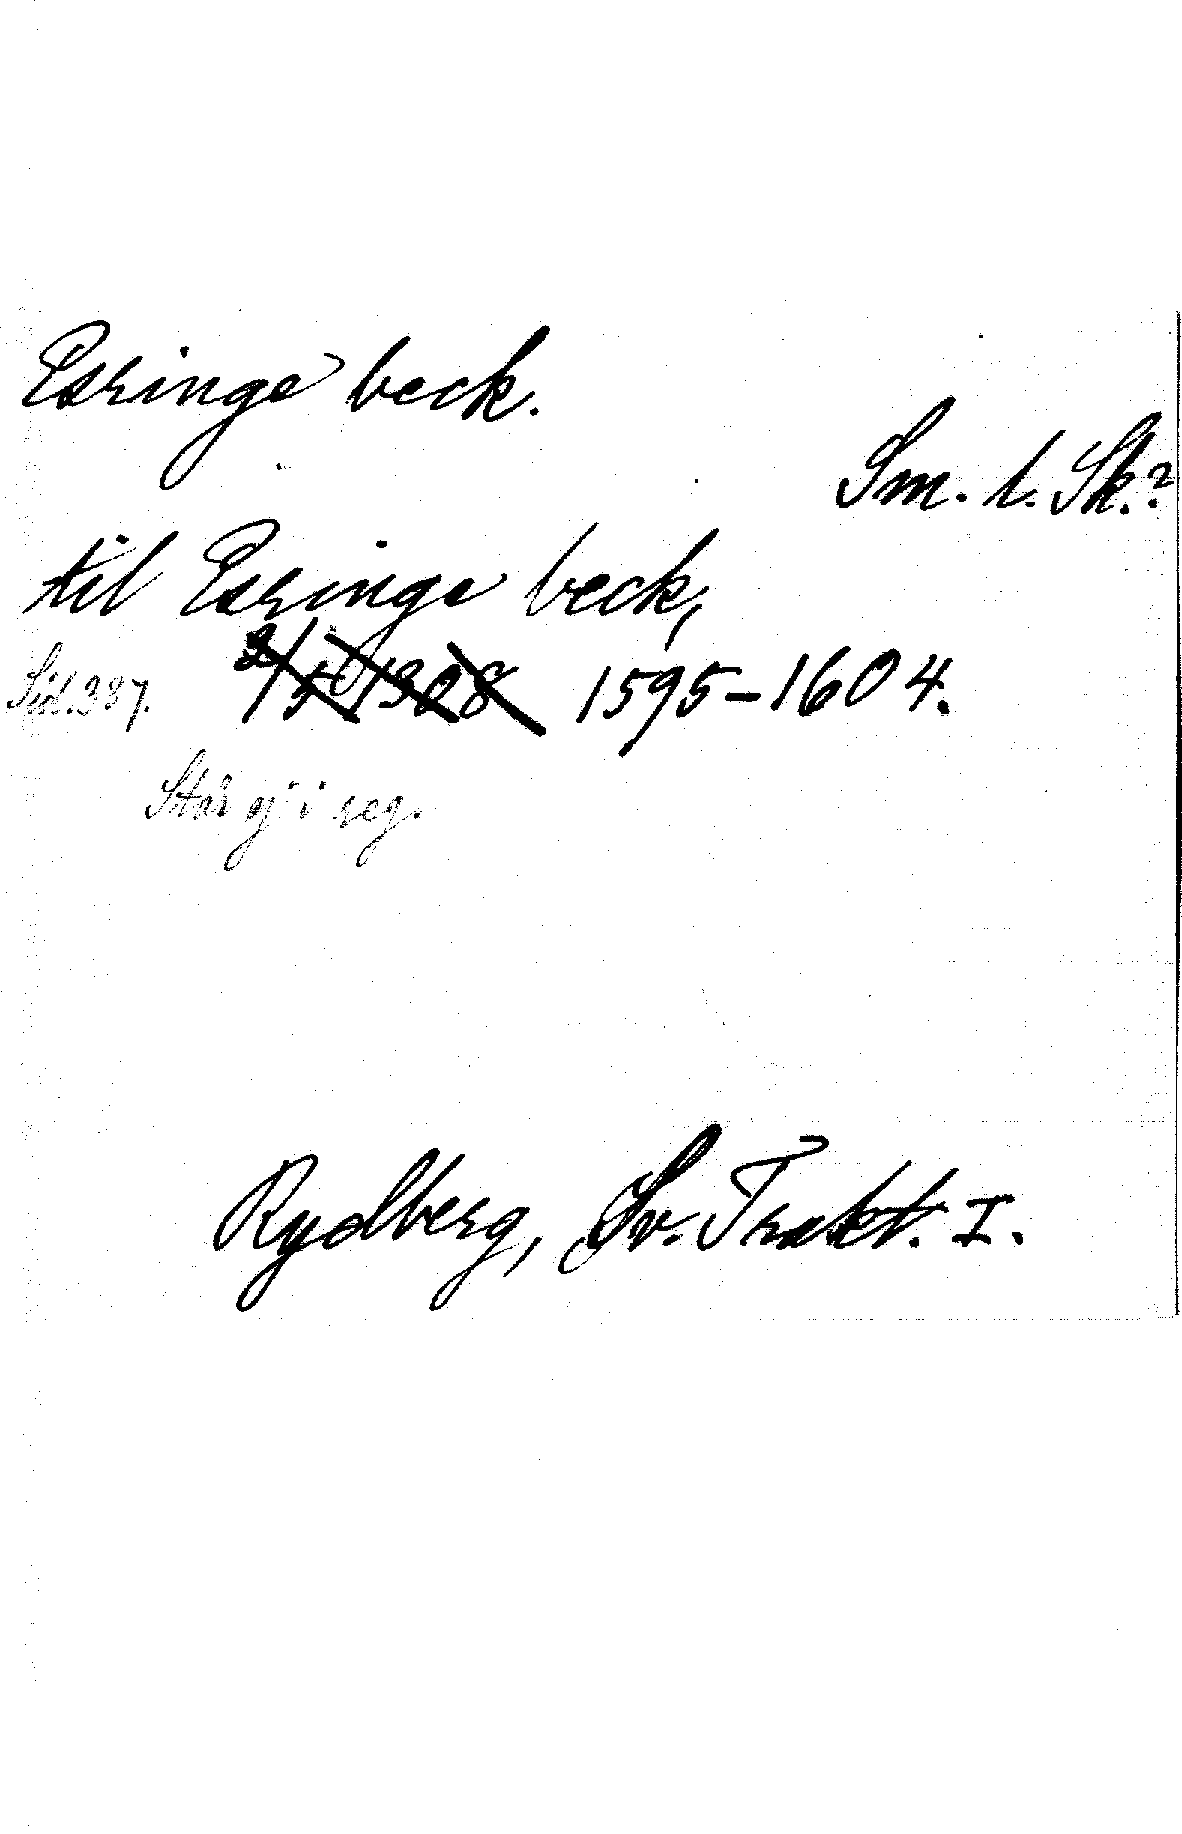 Esringe beck.
Sm. l. Sk.?
til Esringe beck,
Sid. 387. 9/5 1308 1595–1604.
Står ej i reg.
Rydberg, Sv. Trakt. I.